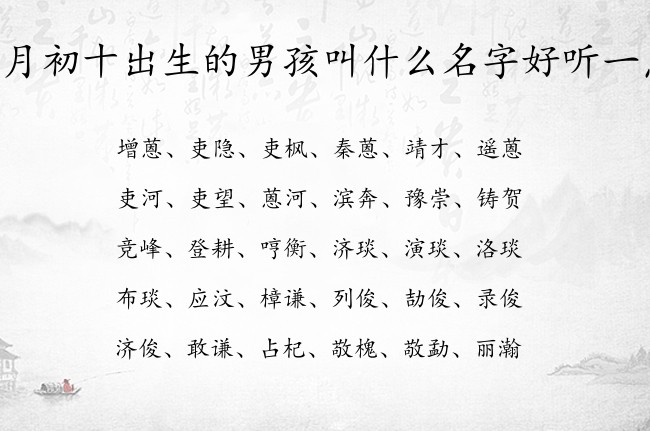 月初十出生的男孩叫什么名字好听一
增蒽、吏隐、吏枫、秦蒽、靖才、遥蒽
吏河、吏望、蒽河、滨奔、豫崇、铸贺
竞峰、登耕、哼衡、济琰、演琰、洛琰
布琰、应汶、樟谦、列俊、劼俊、录俊
济俊、敢谦、占杞、敬槐、敬勐、丽瀚